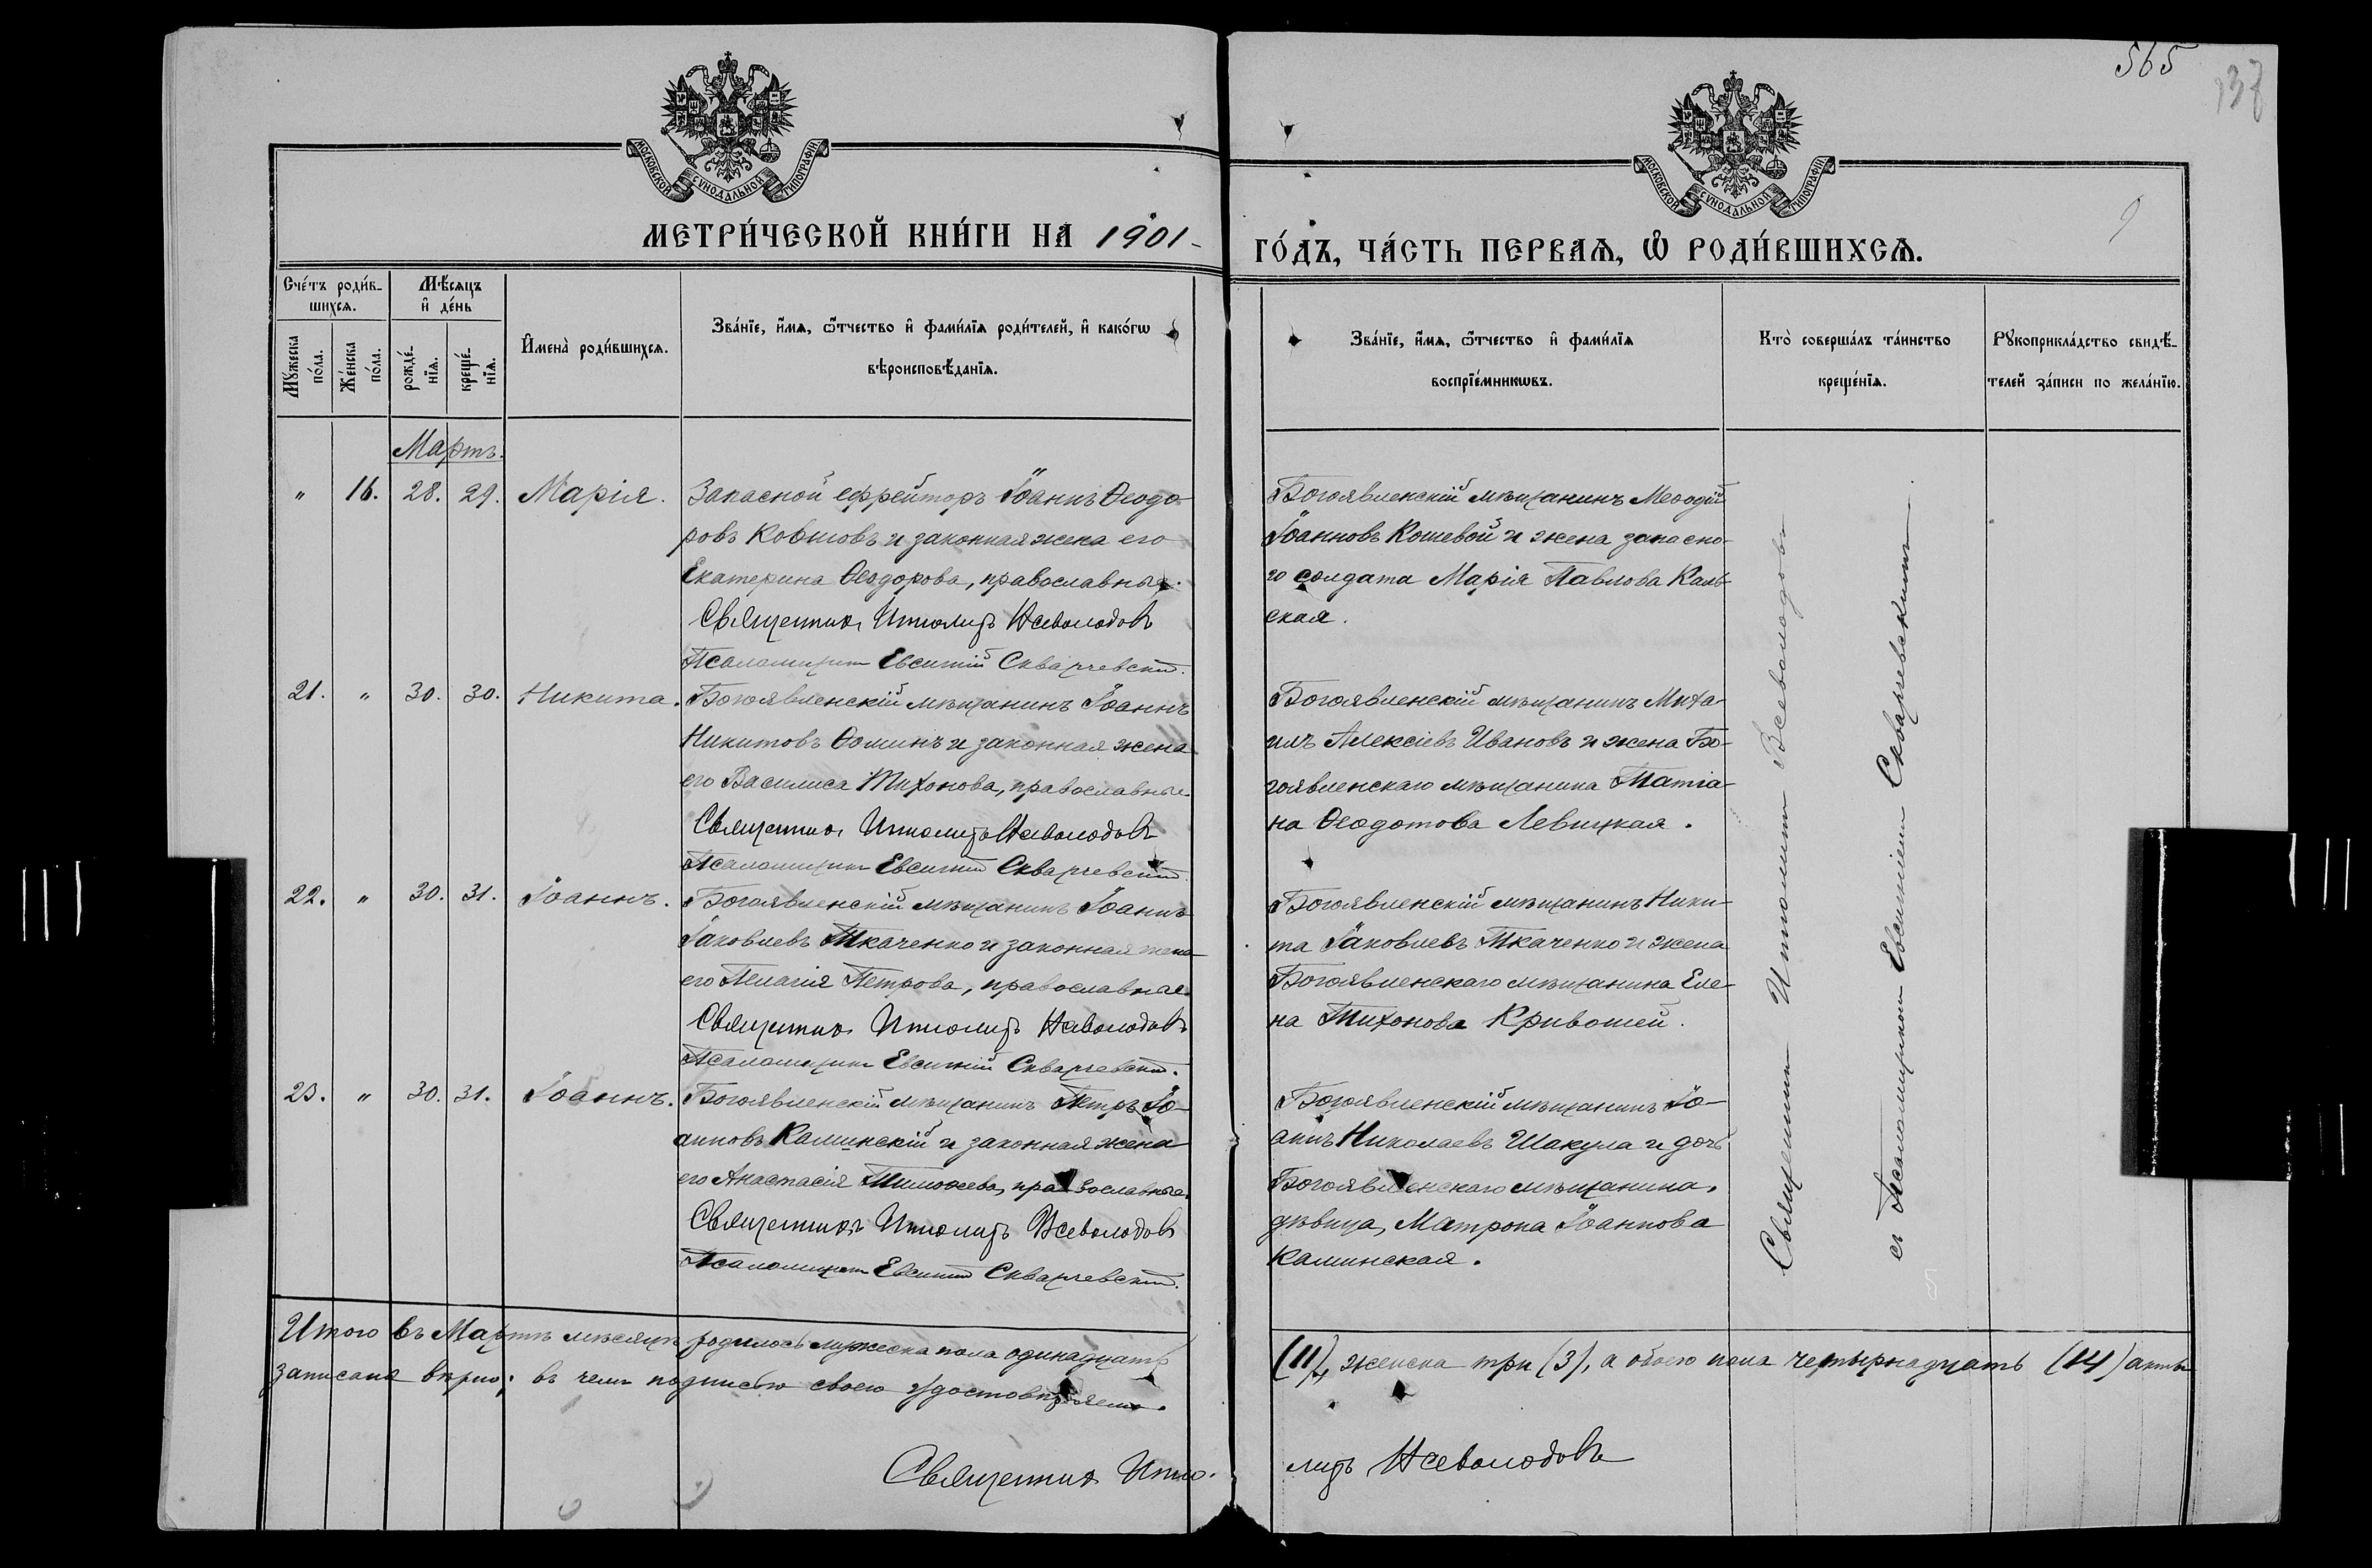 565
137
9
МОСКОВСКОЙ СѴНОДАЛЬНОЙ ТИПОГРАФІИ
МОСКОВСКОЙ СѴНОДАЛЬНОЙ ТИПОГРАФІИ
МЕТРИ́ЧЕСКОЙ КНИ́ГИ НА 1901
ГО́ДЪ, ЧА́СТЬ ПЕРВАѦ, Ѽ РОДИ́ВШИХСѦ.
Сче́тъ роди́в-
шихсѧ.
Мѣ́сѧцъ
и҆ де́нь
Мꙋ́жеска
по́ла.
Же́нска
по́ла.
рожде́-
нїѧ.
креще́-
нїѧ.
И҆мена̀ роди́вшихсѧ.
Зва́нїе, и҆́мѧ, ѻ҆́тчество и҆ фами́лїѧ роди́телей, и҆ како́гѡ
вѣроисповѣ́данїѧ.
Зва́нїе, и҆́мѧ, ѻ҆́тчество и҆ фами́лїѧ
воспрїе́мникѡвъ.
Кто̀ соверша́лъ та́инство
креще́нїѧ.
Рꙋкоприкла́дство свидѣ́-
телей за́писи по жела́нїю.
Мартъ.
" 16. 28. 29. Марія.
Запасной ефрейторъ Іоаннъ Ѳеодо-
ровъ Ковшовъ и законная жена его
Екатерина Ѳеодорова, православные.
Священникъ Ипполитъ Всеволодовъ
Псаломщикъ Евсигній Скварчевскій.
Богоявленскій мѣщанинъ Меѳодій
Іоанновъ Кошевой и жена запасно-
го солдата Марія Павлова Каль-
ская.
21. " 30. 30. Никита.
Богоявленскій мѣщанинъ Іоаннъ
Никитовъ Ѳоминъ и законная жена
его Василиса Тихонова, православные.
Священникъ Ипполитъ Всеволодовъ
Псаломщикъ Евсигній Скварчевскій.
Богоявленскій мѣщанинъ Миха-
илъ Алексіевъ Ивановъ и жена Бо-
гоявленскаго мѣщанина Татіа-
на Ѳеодотова Левицкая.
22. " 30. 31. Іоаннъ.
Богоявленскій мѣщанинъ Іоаннъ
Іаковлевъ Ткаченко и законная жена
его Пелагія Петрова, православные.
Священникъ Ипполитъ Всеволодовъ
Псаломщикъ Евсигній Скварчевскій.
Богоявленскій мѣщанинъ Ники-
та Іаковлевъ Ткаченко и жена
Богоявленскаго мѣщанина Еле-
на Тихонова Кривошей.
23. " 30. 31. Іоаннъ.
Богоявленскій мѣщанинъ Петръ Іо-
анновъ Калинскій и законная жена
его Анастасія Тимоѳеева, православные.
Священникъ Ипполитъ Всеволодовъ
Псаломщикъ Евсигній Скварчевскій.
Богоявленскій мѣщанинъ Іо-
аннъ Николаевъ Шакула и дочь
Богоявленскаго мѣщанина,
дѣвица, Матрона Іоаннова
Калинская.
Священникъ Ипполитъ Всеволодовъ
съ Псаломщикомъ Евсигніемъ Скварчевскимъ
Итого въ Мартѣ мѣсяцѣ родилось мужеска пола одинадцать (11), женска три (3), а обоего пола четырнадцать (14) акты
записаны вѣрно; въ чемъ подписью своею удостовѣряемъ.
Священникъ Иппо-
литъ Всеволодовъ